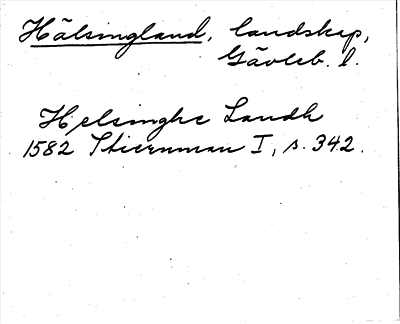 Hälsingland, landskap,
Gävleb. l.
Helsinghe Landh
1582 Stiernman I, s. 342.